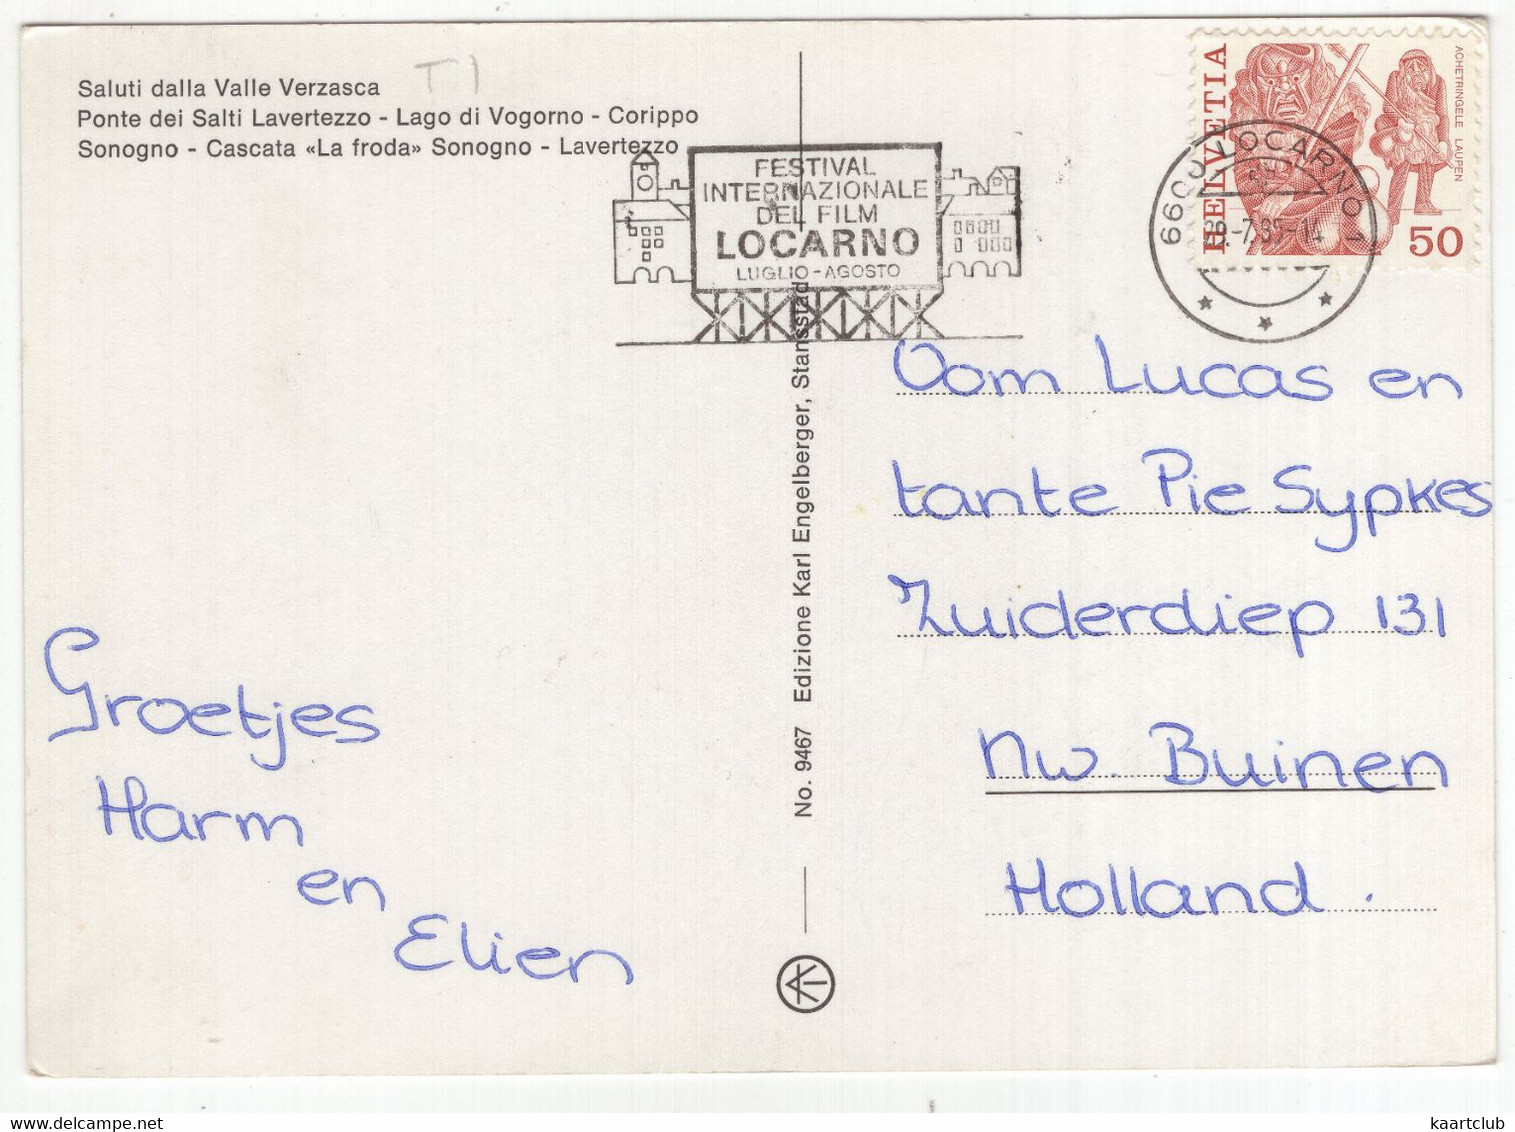 Saluti dalla Valle Verzasca
Ponte dei Salti Lavertezzo - Lago di Vogorno - Corippo
Sonogno - Cascata «La froda» Sonogno - Lavertezzo
T1
FESTIVAL
INTERNAZIONALE
DEL FILM
LOCARNO
LUGLIO-AGOSTO
HELVETIA
ACHETRINGELE LAUPEN
50
6600 LOCARNO 1
-7.85-14
No. 9467 Edizione Karl Engelberger, Stansstad
Groetjes
Harm
en
Elien
Oom Lucas en
tante Pie Sypkes
Zuiderdiep 131
Nw. Buinen
Holland.
kaartclub